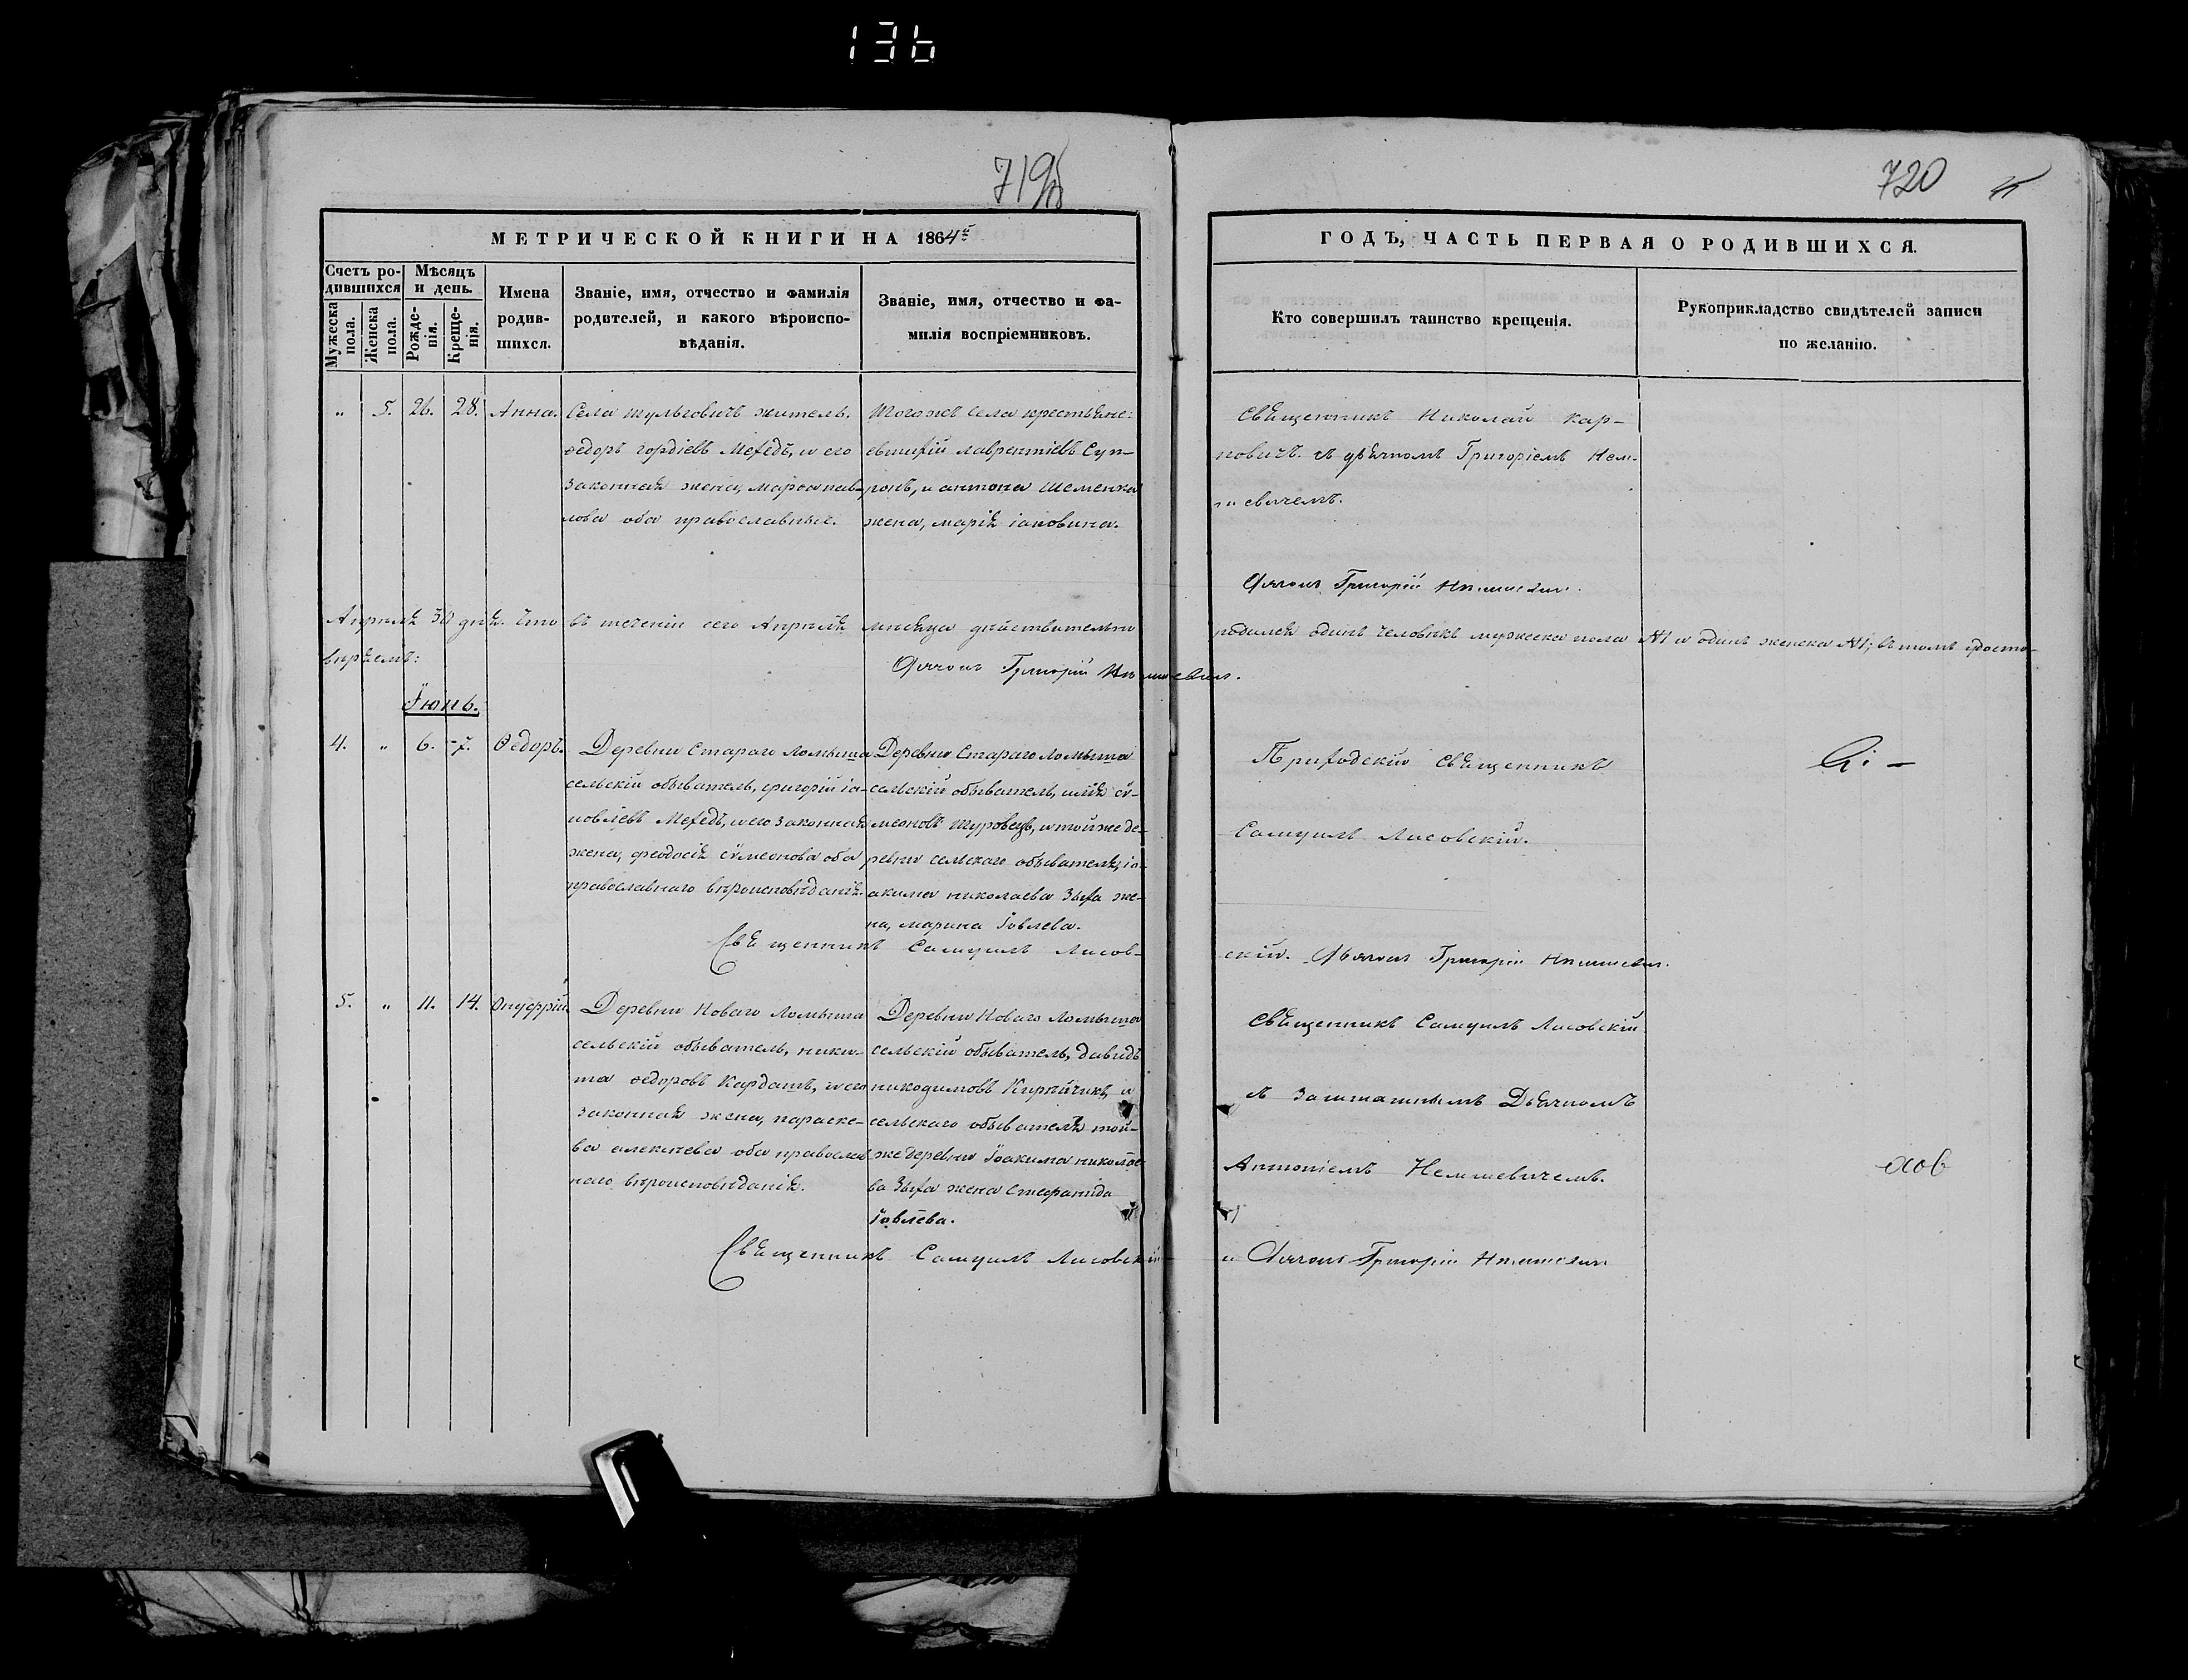 136
719
720
МЕТРИЧЕСКОЙ КНИГИ НА 1864й
ГОДЪ, ЧАСТЬ ПЕРВАЯ О РОДИВШИХСЯ.
Счетъ ро-
дившихся
Мужеска пола.
Женска пола.
Мѣсяцъ
и день.
Рожде-
нія.
Креще-
нія.
Имена
родив-
шихся.
Званіе, имя, отчество и фамилія
родителей, и какого вѣроиспо-
вѣданія.
Званіе, имя, отчество и фа-
милія воспріемниковъ.
Кто совершилъ таинство крещенія.
Рукоприкладство свидѣтелей записи
по желанію.
" 5. 26. 28. Анна.
Села Тульговичъ житель.
ѳедоръ гордіевъ Мехедъ, и его
законная жена, марѳа пав-
лова оба православные.
Тогоже села крестьяне:
евтихій лаврентіевъ Суп-
ронъ, и антона Шеменка
жена, марія іаковина.
Священникъ Николай Кар-
повичъ съ дьячкомъ Григоріемъ Нем-
шевичемъ.
Дячокъ Григорій Немшевич.
Апрѣля 30 дня. Что въ теченіи сего Апрѣля мѣсяца дѣйствительно
родился одинъ человѣкъ мужеска пола №1 и одинъ женска №1; въ томъ удосто-
вѣряемъ:
Дячокъ Григорій Немшевич.
Іюнь.
4. " 6. 7. Ѳедоръ.
Деревни Стараго Ломыша
сельскій обыватель, григорій іа-
ковлевъ Мехедъ, и его законная
жена, феодосія сѵмеонова оба
православнаго вѣроисповѣданія.
Деревни Стараго Ломыша
сельскій обыватель, илія сѵ-
меоновъ Туровецъ, и тойже де-
ревни сельскаго обывателя, іо-
акима николаева Зыха же-
на, марина Іовлева.
Приходскій Священникъ
Самуилъ Лисовскій.
Священникъ Самуилъ Лисов-
скій. Дьячокъ Григорій Немшевич.
5. " 11. 14. Онуфрій
Деревни Новаго Ломыша
сельскій обыватель, ники-
та ѳедоровъ Кардашъ, и его
законная жена, параске-
ва алексѣева оба православ-
наго вѣроисповѣданія.
Деревни Новаго Ломыша
сельскій обыватель, давидъ
никодимовъ Кирпичикъ, и
сельскаго обывателя той-
же деревни Іоакима никола-
ева Зыха жена Стефанида
Іовлева.
Священникъ Самуилъ Лисовскій
съ заштатнымъ Дьячкомъ
Антоніемъ Немшевичемъ.
Священникъ Самуилъ Лисовскій
и Дячокъ Григорій Немшевич